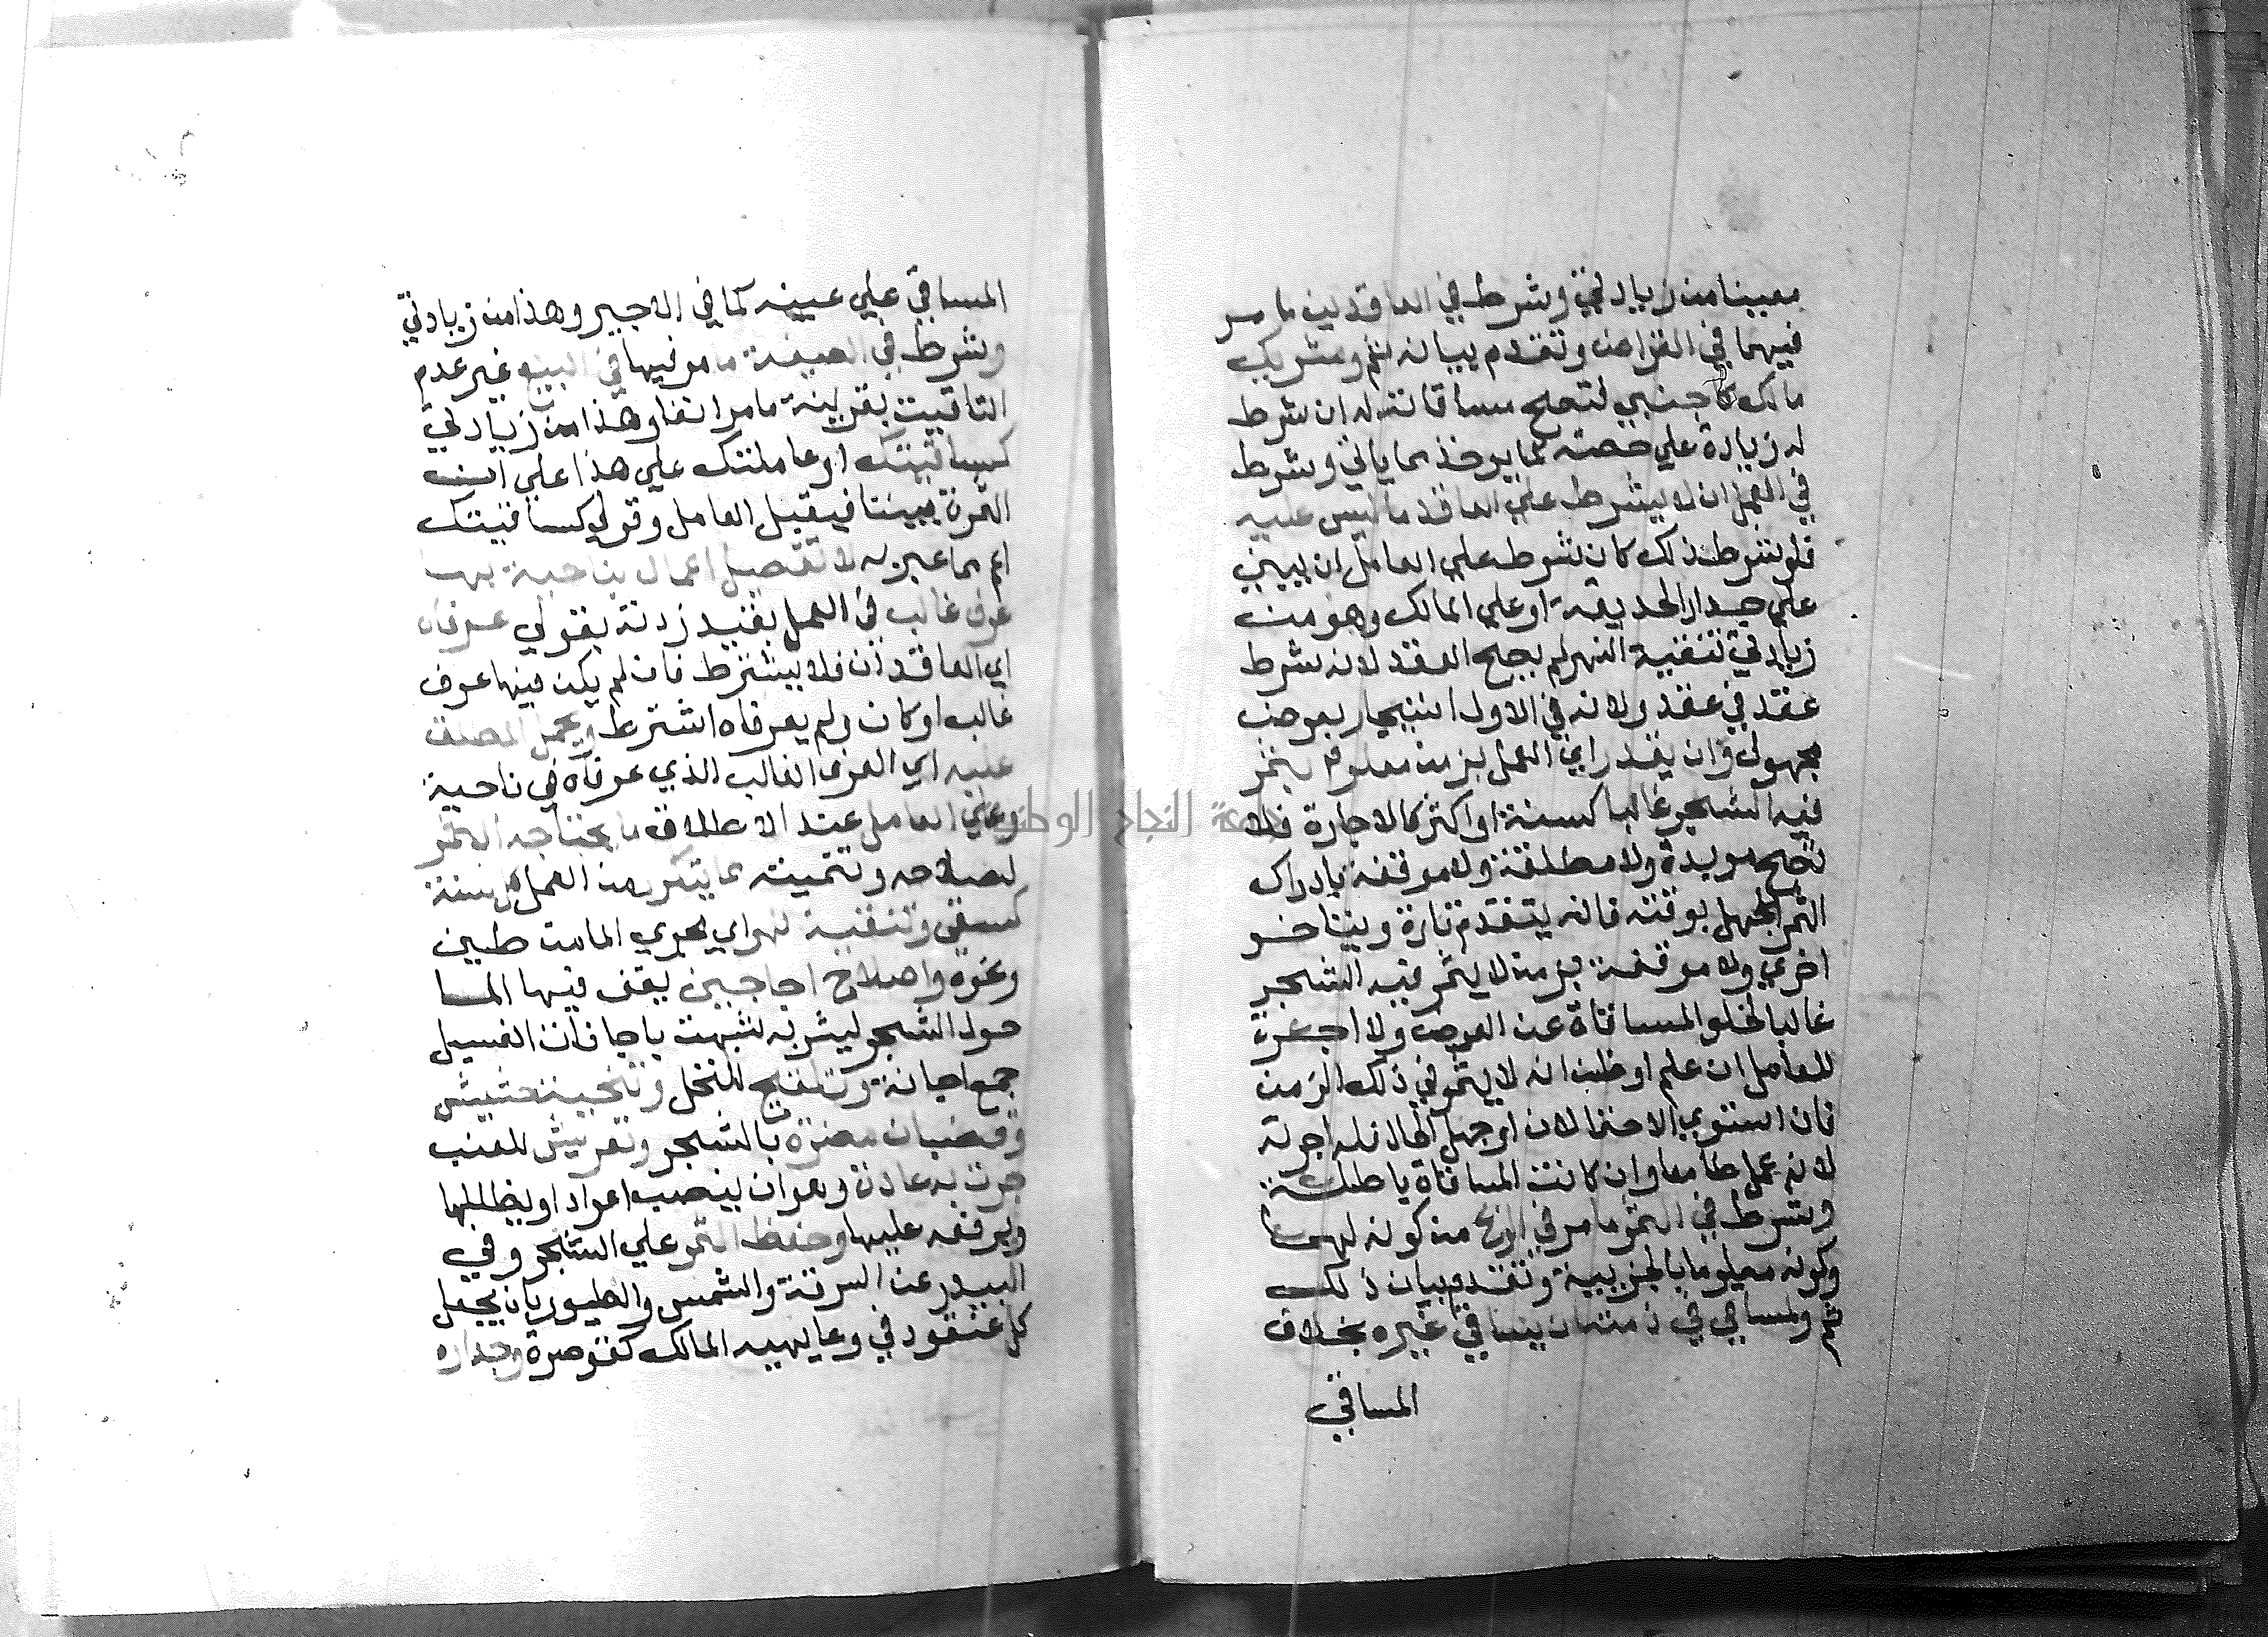 معينا من زيادتي وشرط في العاقدين ما مر
فيهما في القراض وتقدم بيانه ثم وشريك
مالك كاجنبي فتصح مساقاته له ان شرط
له زيادة علي حصته كما يوخذ مما ياتي وشرط
في العمل ان لا يشرط علي العاقد ما ليس عليه
فلو شرط ذلك كان شرط علي العامل ان يبني
علي جدار الحديقة او علي المالك وهو من
زيادتي تنقية النهر لم يصح العقد لانه شرط
عقد في عقد ولانه في الاول استيجار بعوض
مجهول وان يقدر اي العمل بزمن معلوم يثمر
فيه الشجر غالبا كسنة او اكثر كالاجارة فلا
تصح موبدة ولا مطلقة ولا موقتة بادراك
الثمر للجهل بوقته فانه يتقدم تارة ويتاخر
اخري ولا موقتة بزمن لا يثمر فيه الشجر
غالبا لخلو المساقاة عن العوض ولا اجرة
للعامل ان علم او ظن انه لا يثمر في ذلك الزمن
فان استوي الاحتمالان او جهل الحال فله اجرته
لانه عمل طامعا وان كانت المساقاة باطلة
وشرط في الثمر ما مر في الربح من كونه لهما
وكونه معلوما بالجزيية وتقدم بيان ذلك
ثم ولمساقي في ذمته ان يساقي غيره بخلاف
المساقي
المساقي علي عينه كما في الاجير وهذا من زيادتي
وشرط في الصيغة ما مر فيها في البيع غير عدم
التاقيت بقرينة ما مر انفا وهذا من زيادتي
كساقيتك او عاملتك علي هذا علي ان
الثمرة بيننا فيقبل العامل وقولي كساقيتك
اعم مما عبر به لا تفصيل اعمال بناحية بها
عرف غالب في العمل بقيد زدته بقولي عرفاه
اي العاقدان فلا يشترط فان لم يكن فيها عرف
غالب او كان ولم يعرفاه اشترط ويحمل المطلق
عليه اي العرف الغالب الذي عرفاه في ناحية
وعلي العامل عند الاطلاق ما يحتاجه الثمر
لصلاحه وتنميته مما يتكرر من العمل كل سنة
كسقي وتنقية نهر اي مجري الما من طين
ونحوه واصلاح اجاجين يقف فيها الما
حول الشجر ليشربه شبهت باجانات الغسيل
جمع اجانة وتلقيح للنخل وتنحية حشيش
وقضبان مضرة بالشجر وتعريش للعنب
جرت به عادة وهو ان ينصب اعوادا ويظللها
ويرفعه عليها وحفظ الثمر علي الشجر وفي
البيدر عن السرقة والشمس والطيور بان يجعل
كل عنقود في وعا يهيه المالك كقوصرة وجداده
جامعة النجاح الوطنية